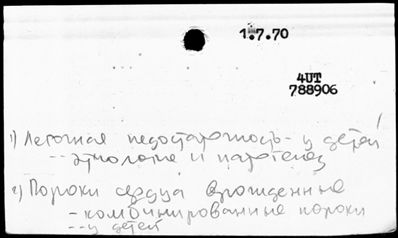 1.7.70
4UT
788906
1) Легочная недостаточность - у детей
-- этиология и патогенез
2) Пороки сердца врожденные
- комбинированные пороки
-- у детей